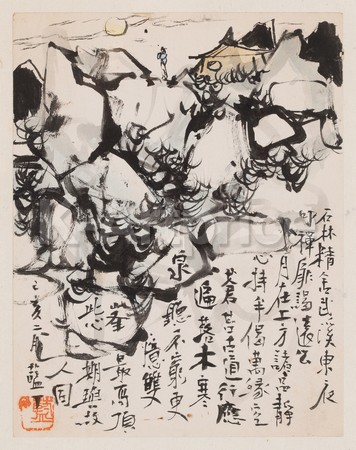 石林精舍武溪東夜
叩禪扉謁遠公
月在上方諸品靜
心持半偈萬緣空
蒼苔古道行應
遍落木寒
泉聽不窮更
憶雙
峯最高頂
此心期與故
人同
己亥二月